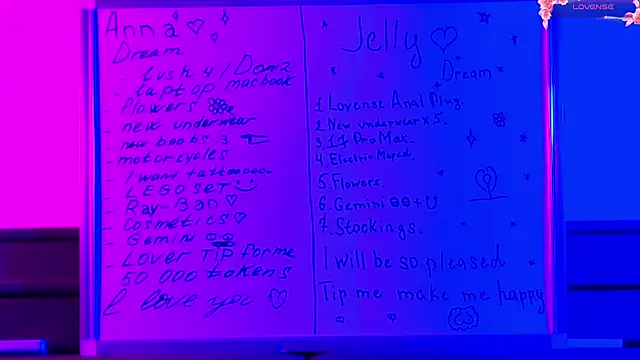 Anna
Dream
lush 4 / Domi 2
laptop macbook
flowers
- new underwear
- new boobs
- motorcycles
- I want
- LEGO SET
- Ray-Ban
- Cosmetics
- Gemini
- Lover Tip for me
50 000 tokens
I love you
Jelly
Dream
1 Lovense Anal Plug.
2 New underwear x 5.
3 17 Pro Max.
4 Electric Moped.
5. Flowers.
6. Gemini
7. Stockings.
I will be so pleased
Tip me make me happy
LOVENSE